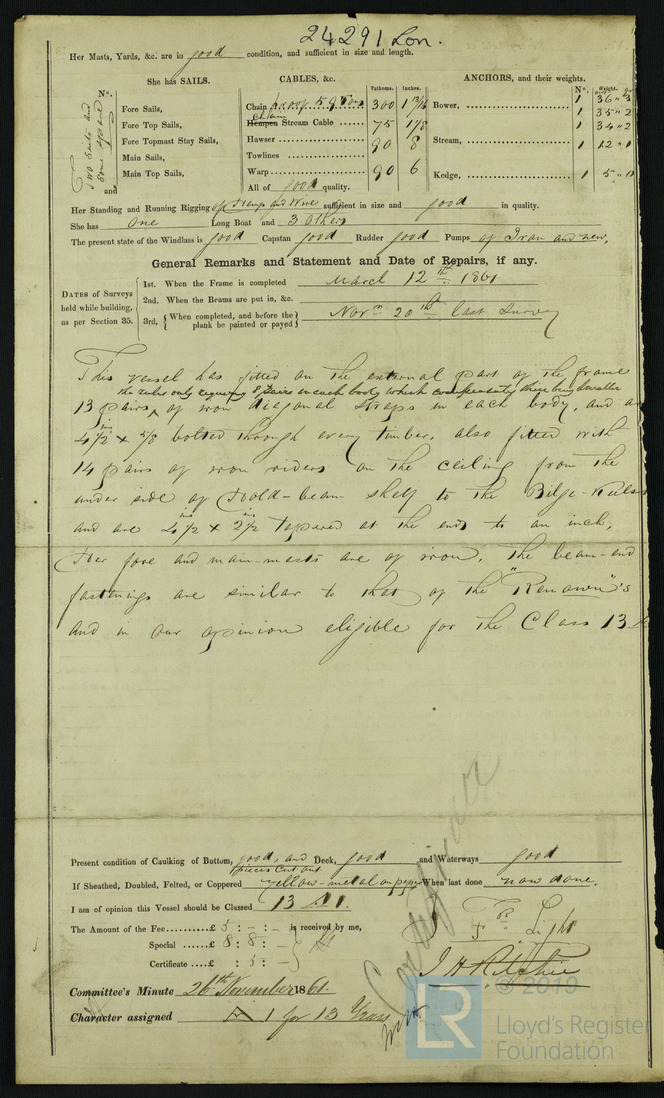 24291 Lon.
Her Masts, Yards, &c. are in good condition, and sufficient in size and length.
She has SAILS.
CABLES, &c.
ANCHORS, and their weights.
N°.
Fathoms. Inches.
N°. Weight.
Two Suits and some spare
Fore Sails,
Fore Top Sails,
Fore Topmast Stay Sails,
Main Sails,
Main Top Sails,
and
Chain proof 300 1 13/16
Hempen chain Stream Cable 75 1 1/8
Hawser 90 8
Towlines
Warp 90 6
All of good quality.
Bower, 1 36 " 3
1 35 " 2
1 34 " 2
Stream, 1 12 " 1
Kedge, 1 5 " 0
Her Standing and Running Rigging of Hemp and Wire sufficient in size and good in quality.
She has One Long Boat and 3 others
The present state of the Windlass is good Capstan good Rudder good Pumps of Iron and new,
General Remarks and Statement and Date of Repairs, if any.
DATES of Surveys held while building, as per Section 35.
1st. When the Frame is completed March 12th 1861
2nd. When the Beams are put in, &c.
3rd, { When completed, and before the plank be painted or payed } Novr 20th last Survey
This vessel has fitted on the external part of the frame
the rules only requiring 8 pairs in each body which consequently these being smaller
13 pairs of iron diagonal straps in each body, and are
4 1/2 ins x 5/8 bolted through every timber, also fitted with
14 pairs of iron riders on the ceiling from the
under side of Hold-beam shelf to the Bilge-Keelson
and are 4 1/2 ins x 2 1/2 ins tapered at the ends to an inch,
Her fore and main-masts are of iron, the beam-end
fastenings are similar to that of the "Renown"'s
and in our opinion eligible for the Class 13
Present condition of Caulking of Bottom, good, and Deck, good and Waterways good
pieces cut out
If Sheathed, Doubled, Felted, or Coppered yellow-metal on paper When last done now done.
I am of opinion this Vessel should be Classed 13 A 1.
The Amount of the Fee £ 5 : - : - is received by me,
Special £ 8 : 8 : -
Certificate £ : 5 : -
Certificate
Fs. Light
J H Ritchie
Committee's Minute 26th November 1861.
Character assigned A 1 for 13 Years
© 2019
LR
Lloyd's Register
Foundation